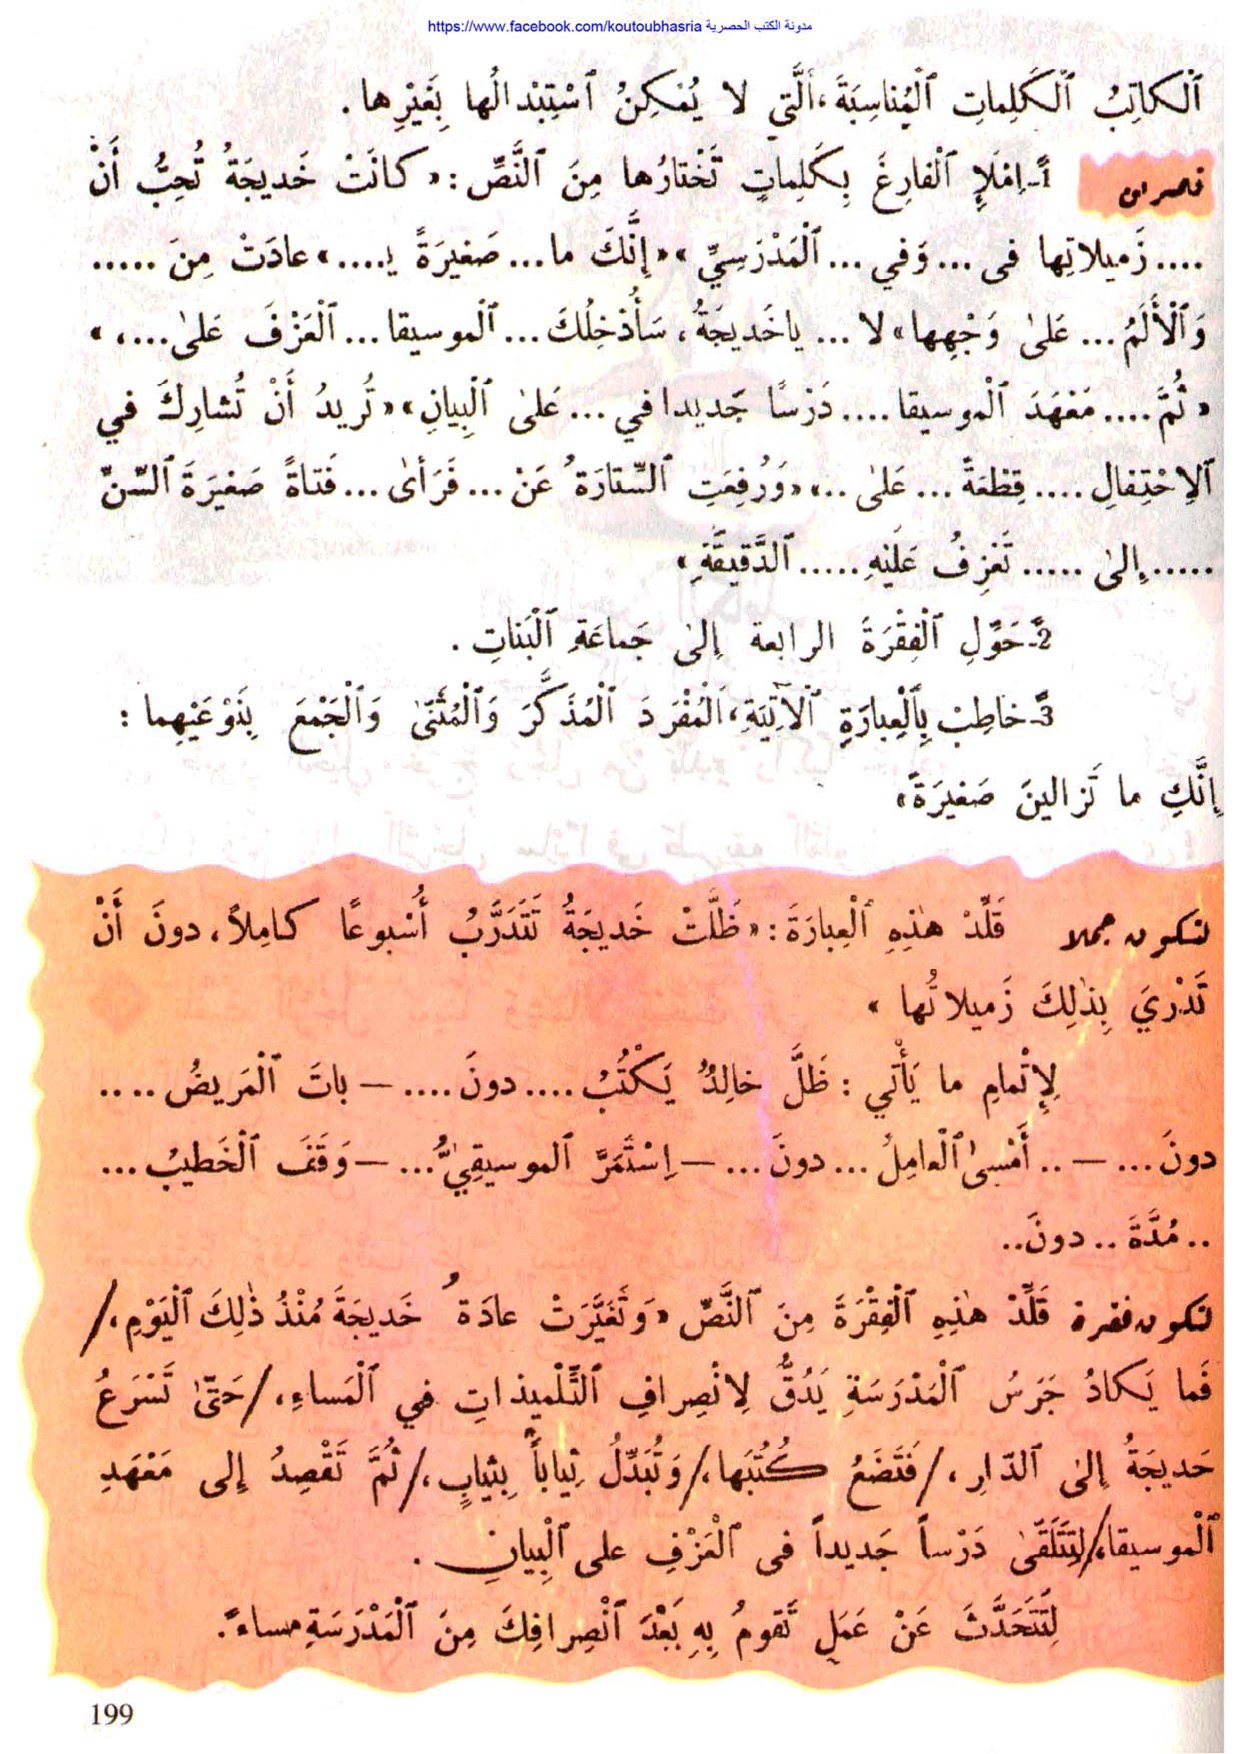 مدونة الكتب الحصرية https://www.facebook.com/koutoubhasria
ٱلْكاتِبُ ٱلْكَلِماتِ ٱلْمُناسِبَةَ، ٱلَّتي لا يُمْكِنُ ٱسْتِبْدالُها بِغَيْرِها .
تمـارين 1ً-اِمْلَإِ ٱلْفارِغَ بِكَلِماتٍ تَخْتارُها مِنَ ٱلنَّصِّ : « كانَتْ خَديجَةُ تُحِبُّ أَنْ
.... زَميلاتِها فى ... وَفي ... ٱلْمَدْرَسِيِّ » « إِنَّكَ ما ... صَغيرَةً يـ.... » عادَتْ مِنَ .....
وَٱلْأَلَمُ ... عَلىٰ وَجْهِها » لا ... ياخَديجَةُ ، سَأُدْخِلُكَ ... ٱلْموسيقا ... ٱلْعَزْفَ عَلىٰ ...، »
« ثُمَّ .... مَعْهَدَ ٱلْموسيقا .... دَرْسًا جَديدا في ... عَلىٰ ٱلْبِيانِ » « تُريدُ أَنْ تُشارِكَ في
ٱلِاحْتِفالِ .... قِطْعَةً ... عَلىٰ ..» « وَرُفِعَتِ ٱلسِّتارَةُ عَنْ ... فَرَأىٰ ... فَتاةً صَغيرَةَ ٱلسِّنِّ
..... إِلىٰ ..... تَعْزِفُ عَلَيْهِ ..... ٱلدَّقيقَةِ »
2ً-حَوِّلِ ٱلْفِقْرَةَ الرابعة إِلىٰ جَماعَةِ ٱلْبَناتِ .
3ً-خاطِبْ بِٱلْعِبارَةِ ٱلْآتِيَةِ، ٱلْمُفْرَدَ ٱلْمُذَكَّرَ وَٱلْمُثَنّىٰ وَٱلْجَمْعَ بِنَوْعَيْهِما :
إِنَّكِ ما تَزالينَ صَغيرَةً »
لتكون جملا قَلِّدْ هٰذِهِ ٱلْعِبارَةَ : « ظَلَّتْ خَديجَةُ تَتَدَرَّبُ أُسْبوعًا كامِلاً ، دونَ أَنْ
تَدْرِيَ بِذٰلِكَ زَميلاتُها »
لِإِتْمامِ ما يَأْتي : ظَلَّ خالِدٌ يَكْتُبُ .... دونَ .... – باتَ ٱلْمَريضُ ....
دونَ ... – .. أَمْسىٰ ٱلْعامِلُ ... دونَ ... – اِسْتَمَرَّ ٱلموسيقِيُّ ... – وَقَفَ ٱلْخَطيبُ ...
.. مُدَّةَ .. دونَ ..
لتكون فقرة قَلِّدْ هٰذِهِ ٱلْفِقْرَةَ مِنَ ٱلنَّصِّ « وَتَغَيَّرَتْ عادَةُ خَديجَةَ مُنْذُ ذٰلِكَ ٱلْيَوْمِ ،/
فَما يَكادُ جَرَسُ ٱلْمَدْرَسَةِ يَدُقُّ لِانْصِرافِ ٱلتِّلْميذاتِ في ٱلْمَساءِ ،/ حَتّىٰ تَسْرَعُ
خَديجَةُ إِلىٰ ٱلدّارِ ،/ فَتَضَعُ كُتُبَها ،/ وَتُبَدِّلُ ثِياباً بِثِيابٍ ،/ ثُمَّ تَقْصِدُ إِلى مَعْهَدِ
ٱلْموسيقا ،/ لِتَتَلَقّىٰ دَرْساً جَديداً فى ٱلْعَزْفِ على ٱلْبِيانِ .
لِتَتَحَدَّثَ عَنْ عَمَلٍ تَقومُ بِهِ بَعْدَ ٱنْصِرافِكَ مِنَ ٱلْمَدْرَسَةِ مساءً .
199